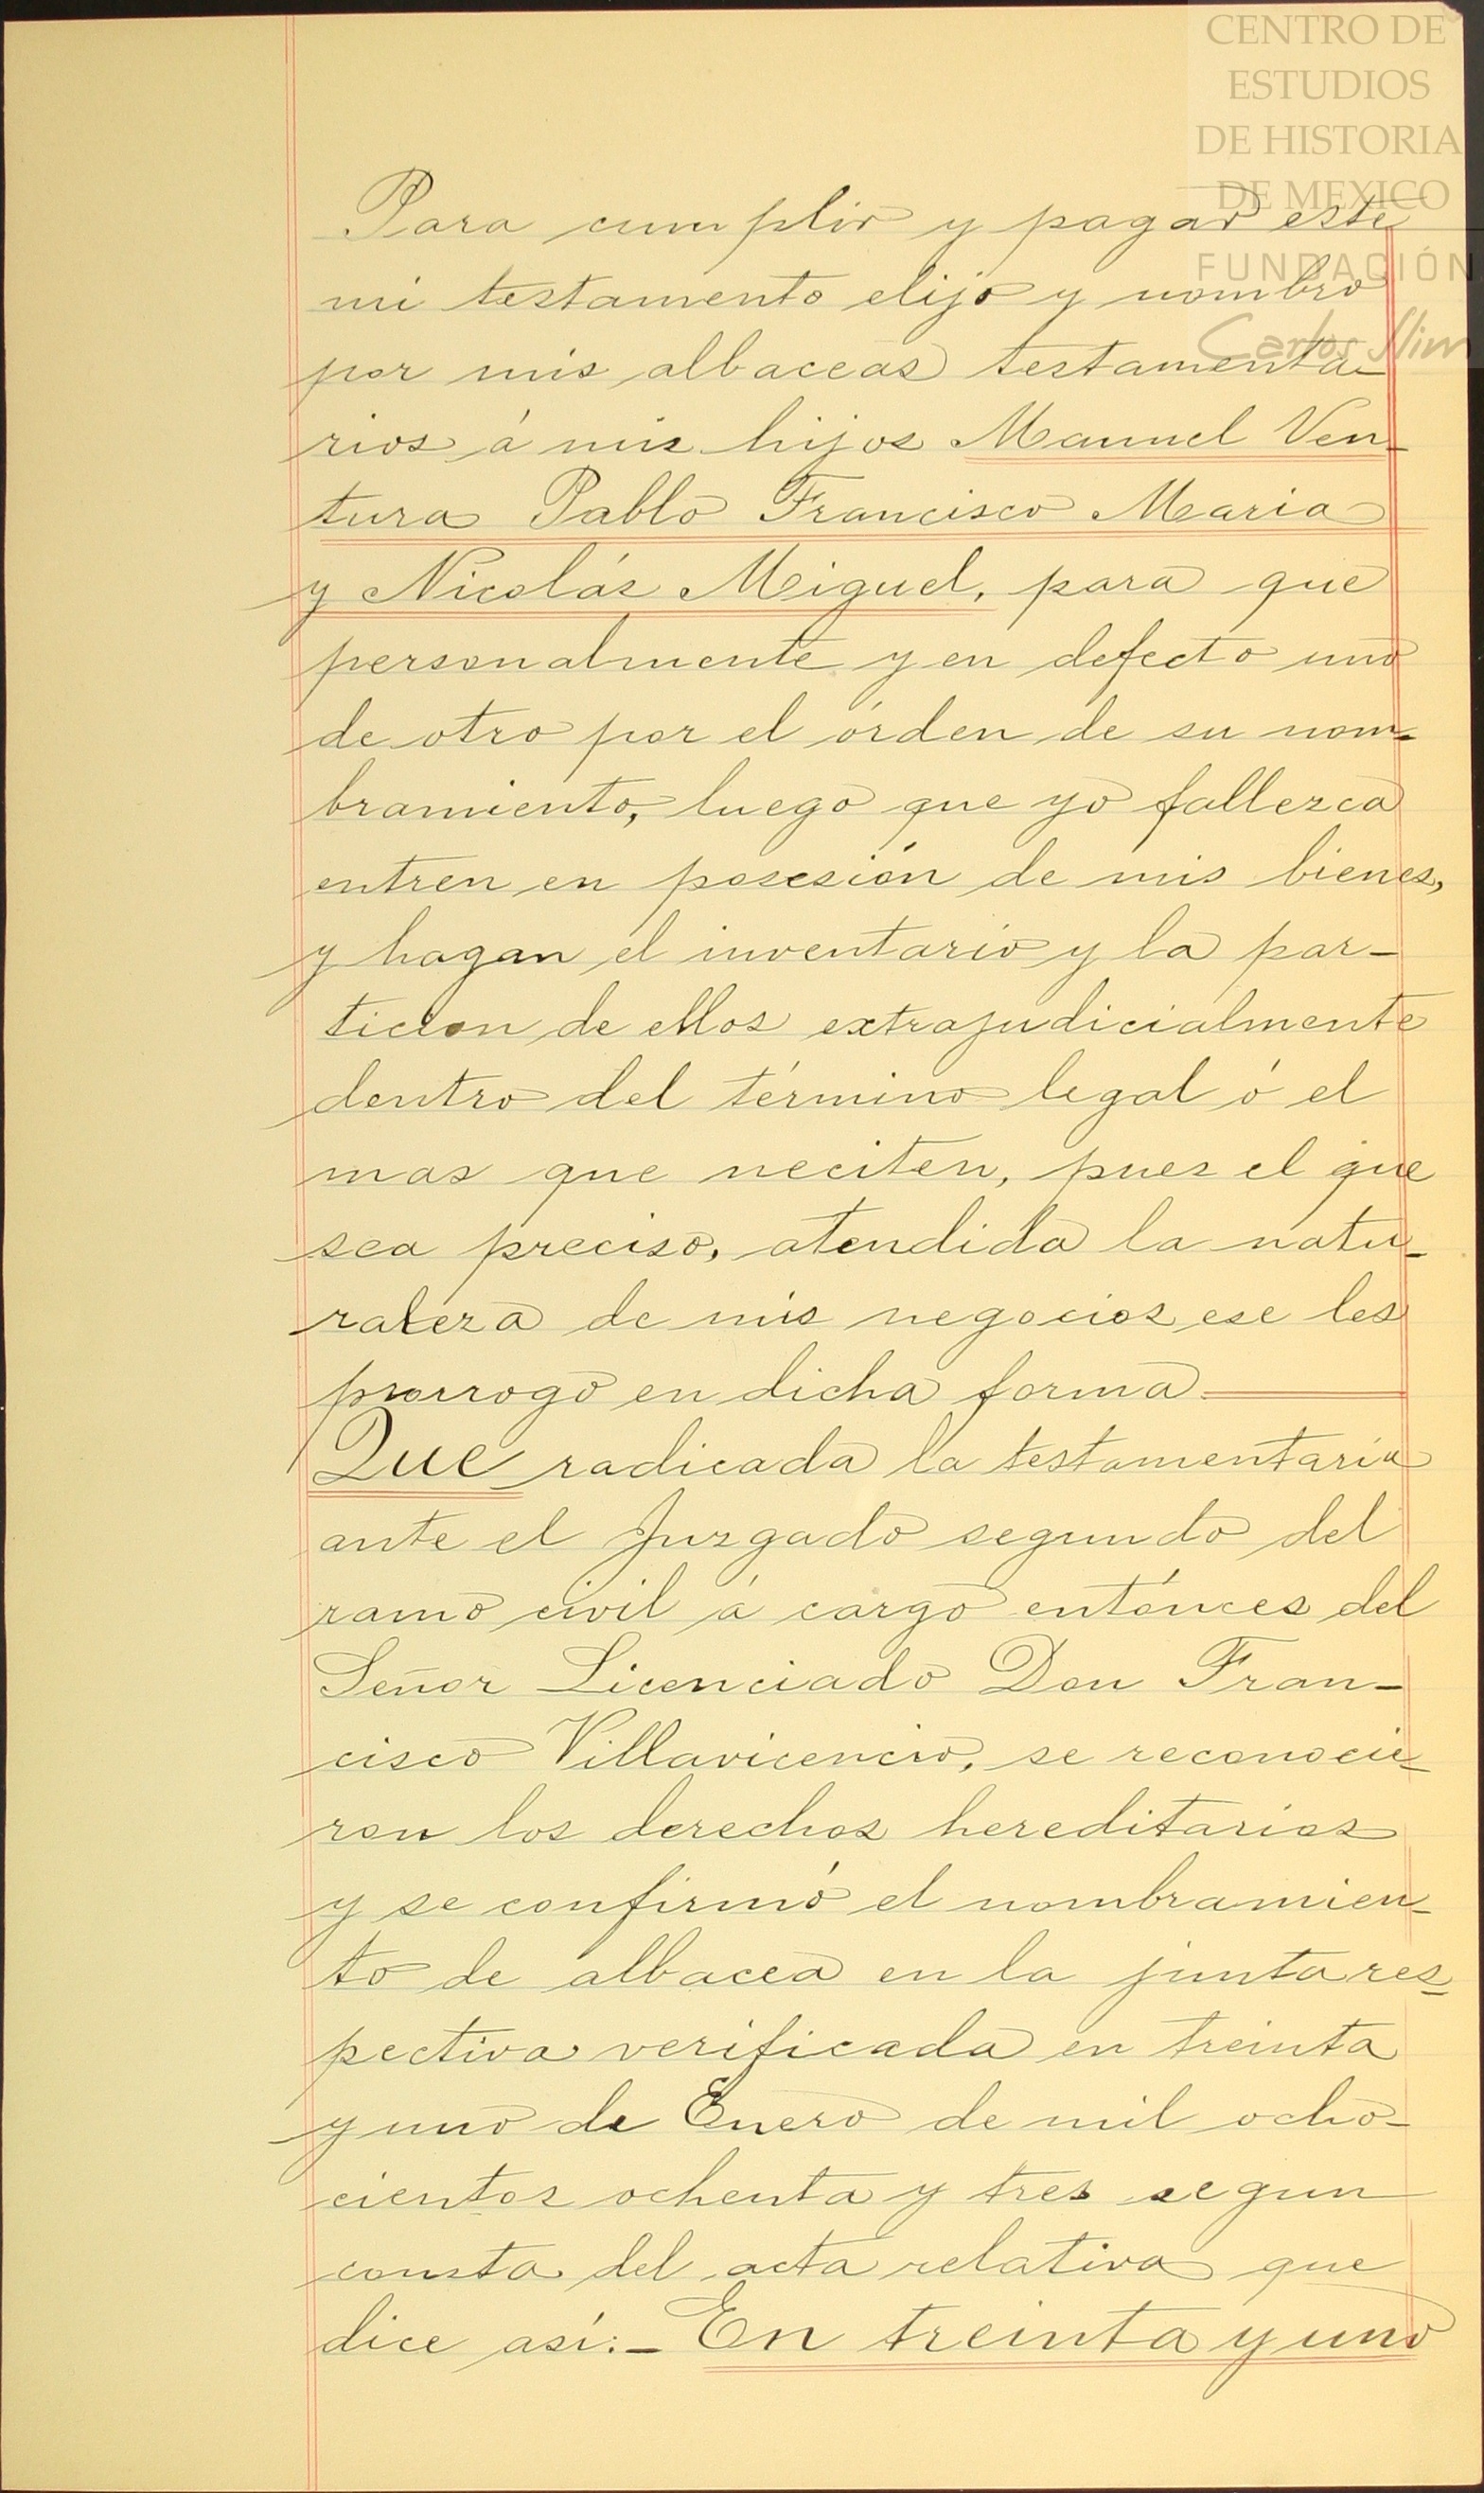 CENTRO DE
ESTUDIOS
DE HISTORIA
DE MEXICO
FUNDACIÓN
Carlos Slim
Para cumplir y pagar este
mi testamento elijo y nombro
por mis albaceas testamenta-
rios á mis hijos Manuel Ven-
tura Pablo Francisco Maria
y Nicolás Miguel, para que
personalmente y en defecto uno
de otro por el órden de su nom-
bramiento, luego que yo fallezca
entren en posesión de mis bienes,
y hagan el inventario y la par-
ticion de ellos extrajudicialmente
dentro del término legal ó el
mas que neciten, pues el que
sea preciso, atendida la natu-
raleza de mis negocios ese les
prorrogo en dicha forma.
Que radicada la testamentaria
ante el Juzgado segundo del
ramo civil á cargo entónces del
Señor Licenciado Don Fran-
cisco Villavicencio, se reconocie-
ron los derechos hereditarios
y se confirmó el nombramien-
to de albacea en la junta res-
pectiva verificada en treinta
y uno de Enero de mil ocho-
cientos ochenta y tres segun
consta del acta relativa que
dice así:- En treinta y uno